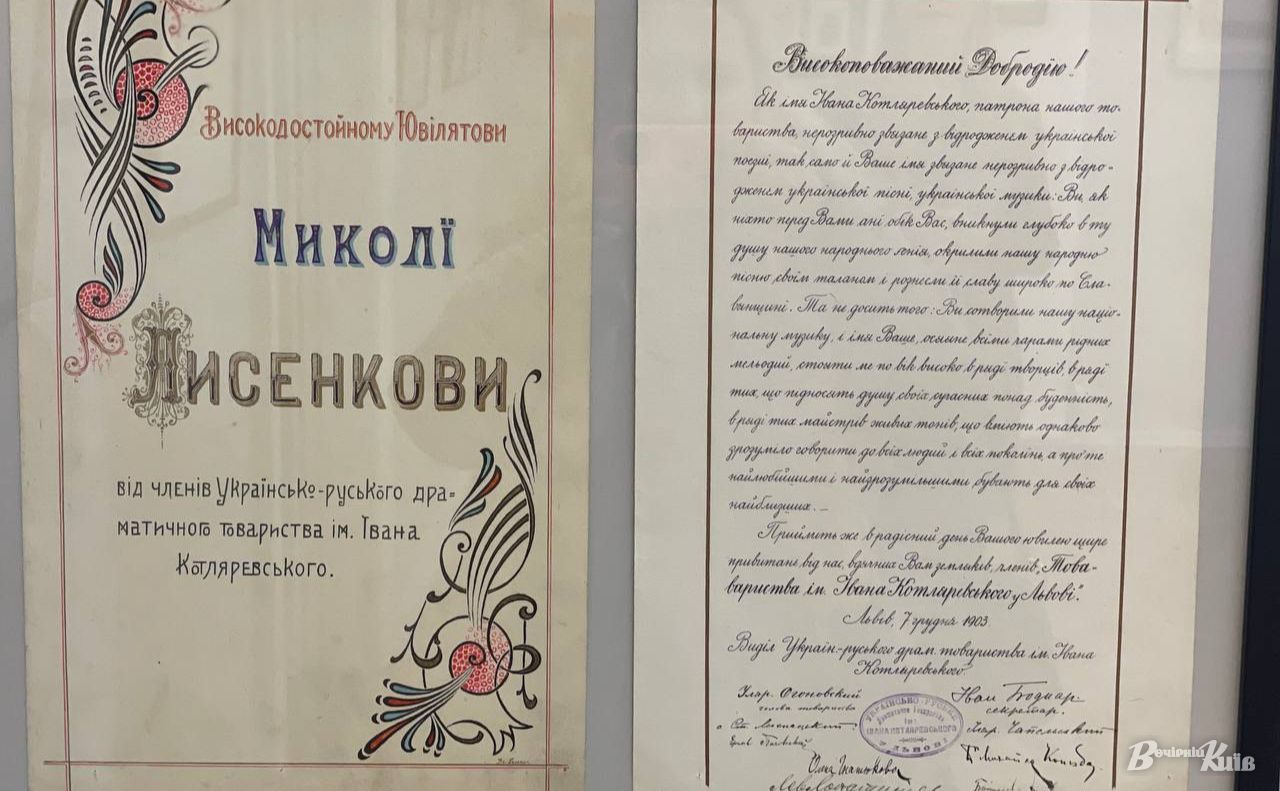 Високодостойному Ювілятови
Миколї
Лисенкови
від членів Українсько-руського дра=
матичного товариства ім. Івана
Котляревського.
Високоповажаний Добродію!
Як імя Івана Котляревського, патрона нашого то-
вариства, нерозривно звязане з відродженєм української
поезиї, так само й Ваше імя звязане нерозривно з відро-
дженєм української пісні, української музики: Ви, як
ніхто перед Вами, ані обік Вас, вникнули глубоко в ту
душу нашого народнього ґенія, окрилили нашу народню
пісню своїм талантом і рознесли її славу широко по Сла-
вянщині. Та не досить того: Ви сотворили нашу націо-
нальну музику, і імя Ваше, осяяне всїми чарами рідних
мельодий, стояти ме по вік високо в ряді творців, в ряді
тих, що підносять душу своїх сучасних понад буденність,
в ряді тих майстрів живих тонів, що вміють однаково
зрозуміло говорити до всїх людий і всїх поколінь, а проте
найлюбійшими і найзрозумільшими бувають для своїх
найблизших. —
Прийміть же в радісний день Вашого ювилею щире
привитанє від нас, вдячних Вам земляків, членів „Това-
вариства ім. Івана Котляревського у Львові".
Львів, 7 грудня 1903
Виділ Україн.-руського драм. товариства ім. Івана
Котляревського.
Іляр. Огоновский
голова товариства
Іван Боднар
секретар.
УКРАЇНСЬКО-РУСЬКЕ
ІВАНА КОТЛЯРЕВСЬКОГО
У ЛЬВОВІ
Вечірній Київ